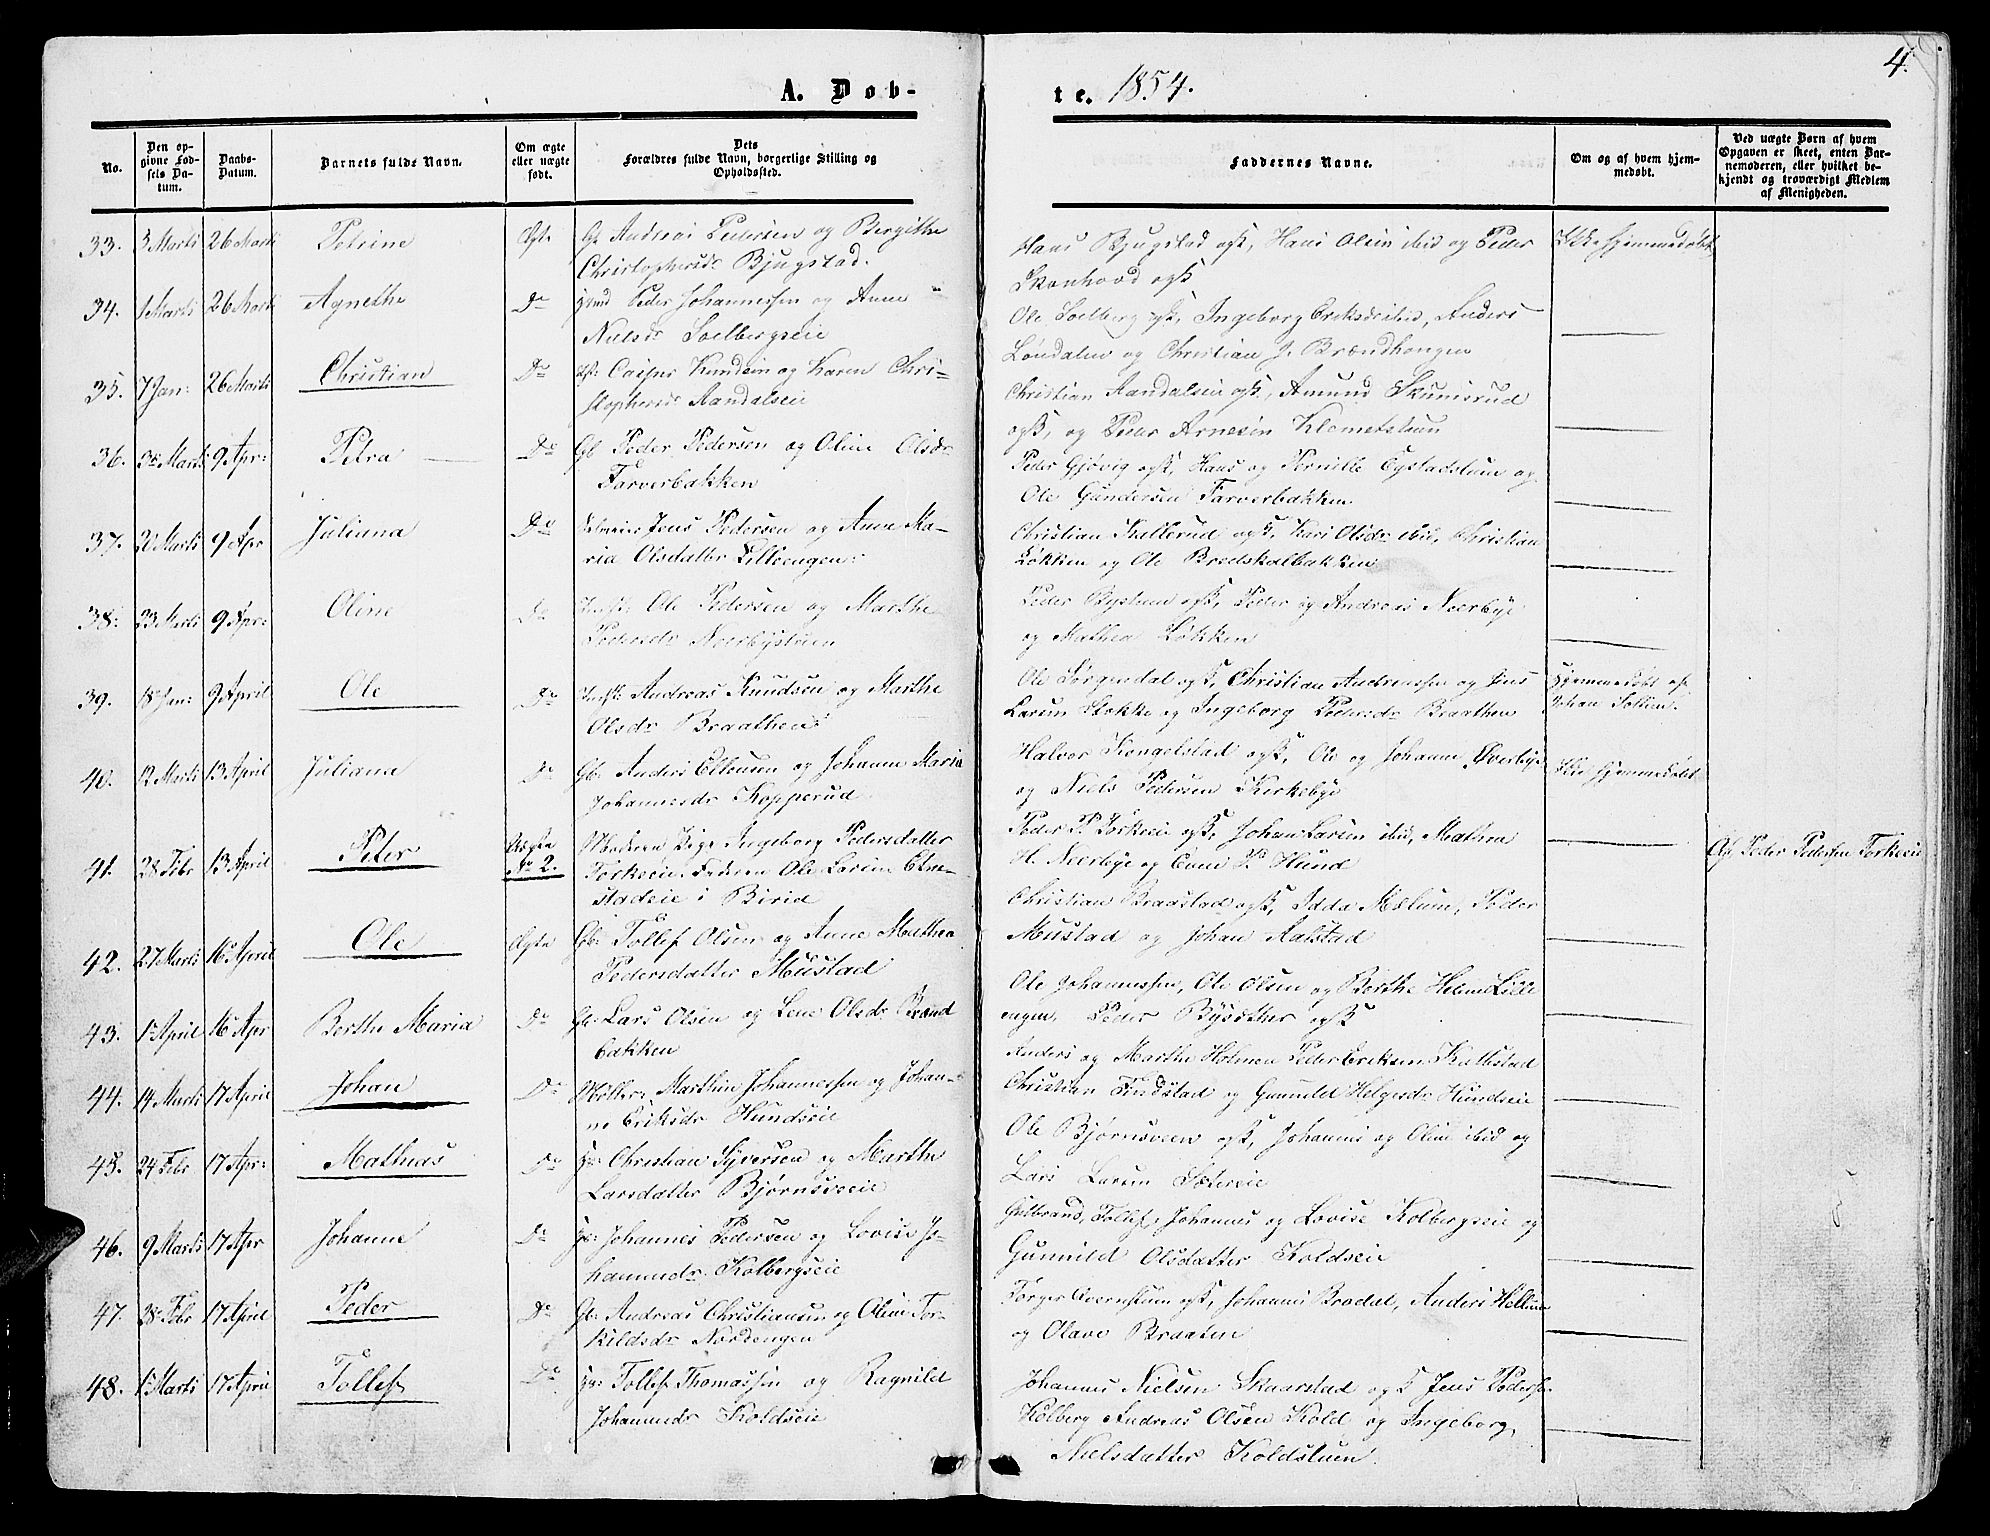 4.
A. Døb-
te. 1854.
No.
Den op-
givne Fød-
sels Da-
tum.
Daabs-
Datum.
Barnets fulde Navn.
Om ægte
eller uægte
født.
Dets
Forældres fulde Navn, borgerlige Stilling og
Opholdssted.
Faddernes Navne.
Om og af hvem hjem-
medøbt.
Ved uægte Børn af hvem
Opgaven er skeet, enten Bar-
nemoderen, eller hvilket be-
kjendt og troværdigt Medlem
af Menigheden.
33. 3 Marts 26 Marts Petrine Ægte Andreas Pedersen og Bergithe
Christophersdr Bjugstad.
Hans Bjugstad ogsk, Hans Olsen ibid og Peder
Skonhovd ogsk
Ikke hjemmedøbt
34. 1 Marts 26 Marts Agnethe Do Peder Johannessen og Anne
Nielsdr Soelbergseie
Ole Soelberg ogsk, Ingeborg Eriksdr ibid, Anders
Løndalen og Christian J. Brændhongen
35. 7 Jan: 26 Marts Christian Do Casper Knudsen og Karen Chri-
stophersdr Aandalseie
Christian Aandalseie ogsk, Amund Skumsrud
ogsk, og Peder Arnesen Klemetstuen
36. Marts 9 Apr: Petra Do Peder Pedersen og Oline Olsdr
Farverbakken
Peder Gjøvig ogsk, Hans og Pernille Eystadstuen og
Ole Gundersen Farverbakken
37. 20 Marts 9 Apr Juliana Do Jens Pedersen og Anne Ma-
ria Olsdatter Lilleengen:
Christian Skellerud ogsk, Kari Olsdr ibid, Christian
Løkken og Ole Bredskalbakken
38: 23 Marts 9 Apr: Oline Do Ole Pedersen og Marthe
Pedersdr Neerbystuen
Peder Bystuen ogsk, Peder og Andreas Neerbye
og Mathea Løkken
39. 18 Jan: 9 April Ole Do Andreas Knudsen og Marthe
Olsdr Braathen
Ole Sørgendal ogsk, Christian Andreassen og Jens
Larsen Stokke og Ingeborg Pedersdr Braathen
Hjemmedøbt af
Johan
40. 12 Marts 13 April Juliana Do Gb: Anders Ellensen og Johanne Maria
Johannesdr Kopperud
Halvor Kongelstad ogsk, Ole og Johanne Øverbye
og Niels Pedersen Kirkebye
Ikke hjemmedøbt
41. 28 Febr 13 April Peter Uægte
No 2. Moderen Pige Ingeborg Pedersdatter
Torkeeie. Faderen Ole Larsen
stadeie i Birid
Peder P. Torkeeie ogsk, Johan Larsen ibid, Mathea
H. Neerbye og Even P. Hund
Af Peder Pedersen Torkeeie
42. 27 Marts 16 April Ole Ægte Gb: Tollef Olsen og Anne Mathea
Pedersdatter Mustad
Christian Braastad ogsk, Idda Mælum, Peder
Mustad og Johan Aalstad
43. 1 April 16 Apr Berthe Maria Do Lars Olsen og Lene Olsdr Brænd
bakken
Ole Johannessen, Ole Olsen og Berthe Helene Lille
engen, Peder Bysether ogsk
44. 14 Marts 17 April Johan Do Møller: Marthin Johannessen og Johan-
ne Eriksdr Hundseie
Anders og Marthe Holmen Peder Eriksen Kalkstad
Christian Findstad og Gunnild Helgesdr Hundseie
45. 24 Febr 17 Apr: Mathias Do Christian Syversen og Marthe
Larsdatter Bjørnsveeie
Ole Bjørnsveen ogsk, Johannes og Oline ibid og
Lars Larsen Sætereie
46. 9 Marts 17 Apr Johanne Do Johannes Pedersen og Lovise Jo-
hannesdr. Kolbergseie
Gulbrand, Tollef, Johannes og Lovise Kolbergseie og
Gunnild Olsdatter Koldseie
47. 28 Febr 17 April Peder Do Gb: Andreas Christiansen og Oline Tor-
kildsdr Nordengen
Torger Evenstuen ogsk, Johannes Brodal, Anders Hellum
og Olave Braaten
48. 1 Marts 17 April Tollef Do Tollef Thomassen og Ragnild
Johannesdr Koldseie
Johannes Nielsen Skaarstad ogsk Jens Pedersen
Kolberg Andreas Olsen Kold og Ingeborg
Nielsdatter Koldstuen.